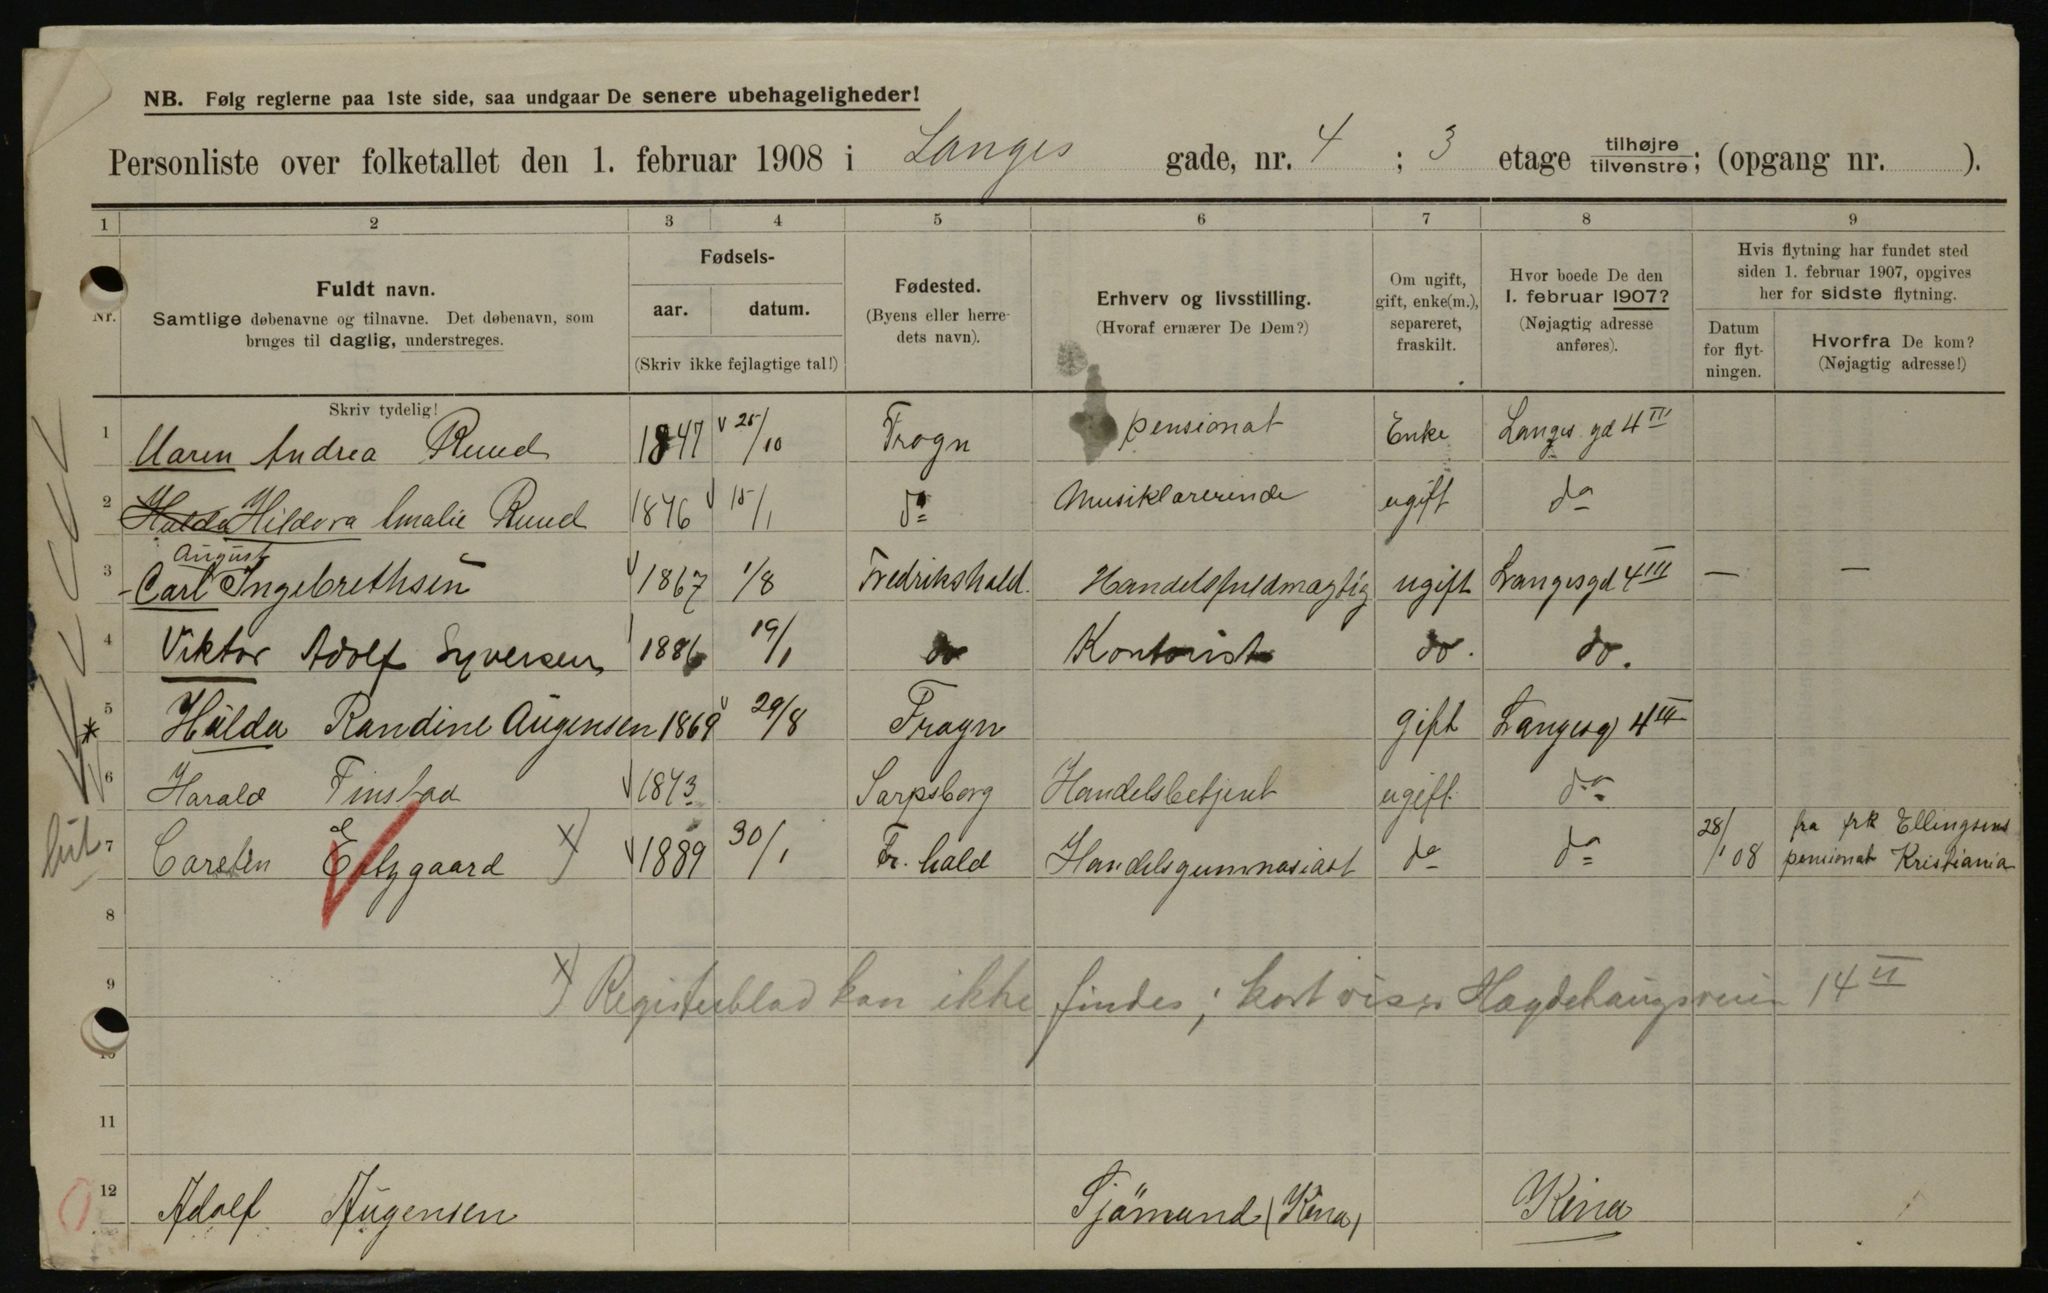 NB. Følg reglerne paa 1ste side, saa undgaar De senere ubehageligheder!
Personliste over folketallet den 1. februar 1908 i Langes gade, nr. 4 ; 3 etage tilhøjre tilvenstre; (opgang nr. ).
1 2 3 4 5 6 7 8 9
Nr.
Fuldt navn.
Samtlige døbenavne og tilnavne. Det døbenavn, som
bruges til daglig, understreges.
Skriv tydelig!
Fødsels-
aar. datum.
(Skriv ikke fejlagtige tal!)
Fødested.
(Byens eller herre-
dets navn).
Erhverv og livsstilling.
(Hvoraf ernærer De Dem?)
Om ugift,
gift, enke(m.),
separeret,
fraskilt.
Hvor boede De den
1. februar 1907?
(Nøjagtig adresse
anføres).
Hvis flytning har fundet sted
siden 1. februar 1907, opgives
her for sidste flytning.
Datum
for flyt-
ningen.
Hvorfra De kom?
(Nøjagtig adresse!)
1 Maren Andrea Ruud 1847 25/10 Frogn pensionat Enke Langes gd 4 III
2 Hulda Hildora Amalie Ruud 1876 15/1 do Musiklærerinde ugift do
August
3 Carl Ingebrethsen 1867 1/8 Fredrikshald. Handelsfuldmægtig ugift Langesgd 4 III — —
4 Viktor Adolf Syversen 1886 19/1 do Kontorist do. do.
* 5 Hulda Randine Augensen 1869 29/8 Frogn gift Langesg 4 III
6 Harald Finstad 1873 Sarpsborg Handelsbetjent ugift. do
7 Carsten 1889 30/1 Fr. hald Handelsgymnasiast do do 28/1 08 fra frk Ellingsens
pensionat Kristiania
8
9 x) Registerblad kan ikke findes; kort viser Hægdehaugsveien 14 II
10
11
12 Adolf Augensen Sjömand (Kina) Kina